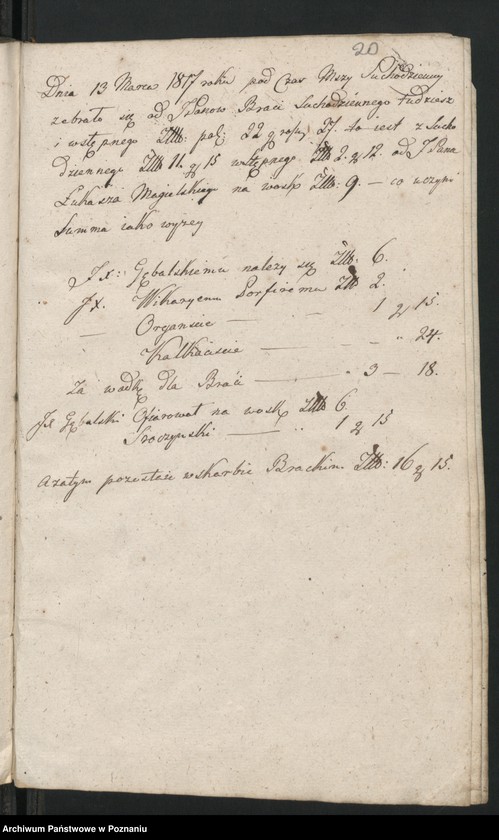 20
Dnia 13 Marca 1817 roku pod Czas Mszy Suchodzienny
zebrało się od JPanow Braci Suchodziennego tudziesz
i wstępnego Złłł: pol: 22 groszy 27. to iest z Sucho
dziennego Złłł 11. g 15 wstępnego Złłł 2. g 12. od JPana
Łukasza Magielskiego na wosk Złłł: 9. — co uczyni
Summa iako wyzey
Jx: Gębalskiemu nalezy się Złłł: 6.
Jx. Wikaryemu Porfiremu Złł 2.
— Organiscie — — 1 g 15.
Kalkaiscie — — " 24.
Za wodkę dla Braci — " 3 — 18.
Jx Gębalski Ofiarował na wosk Złłł 6.
Sroczynski — " 1 g 15
a zatym pozostaie w skarbie Brackim Złłł: 16 g 15.
Archiwum Państwowe w Poznaniu